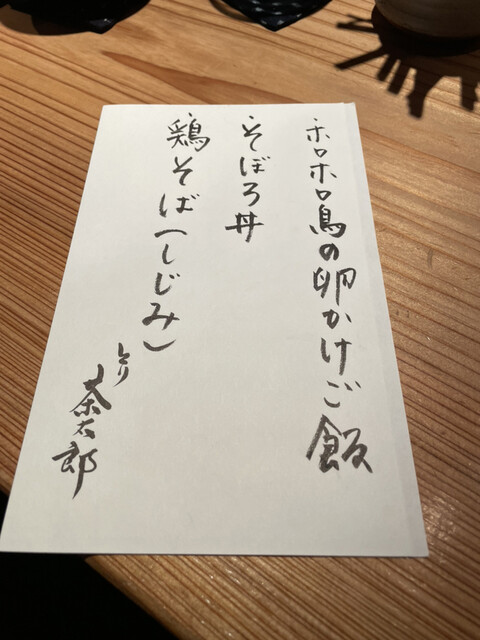 ・ホロホロ鳥の卵かけご飯
・そぼろ丼
・鶏そば(しじみ)
とり
茶太郎